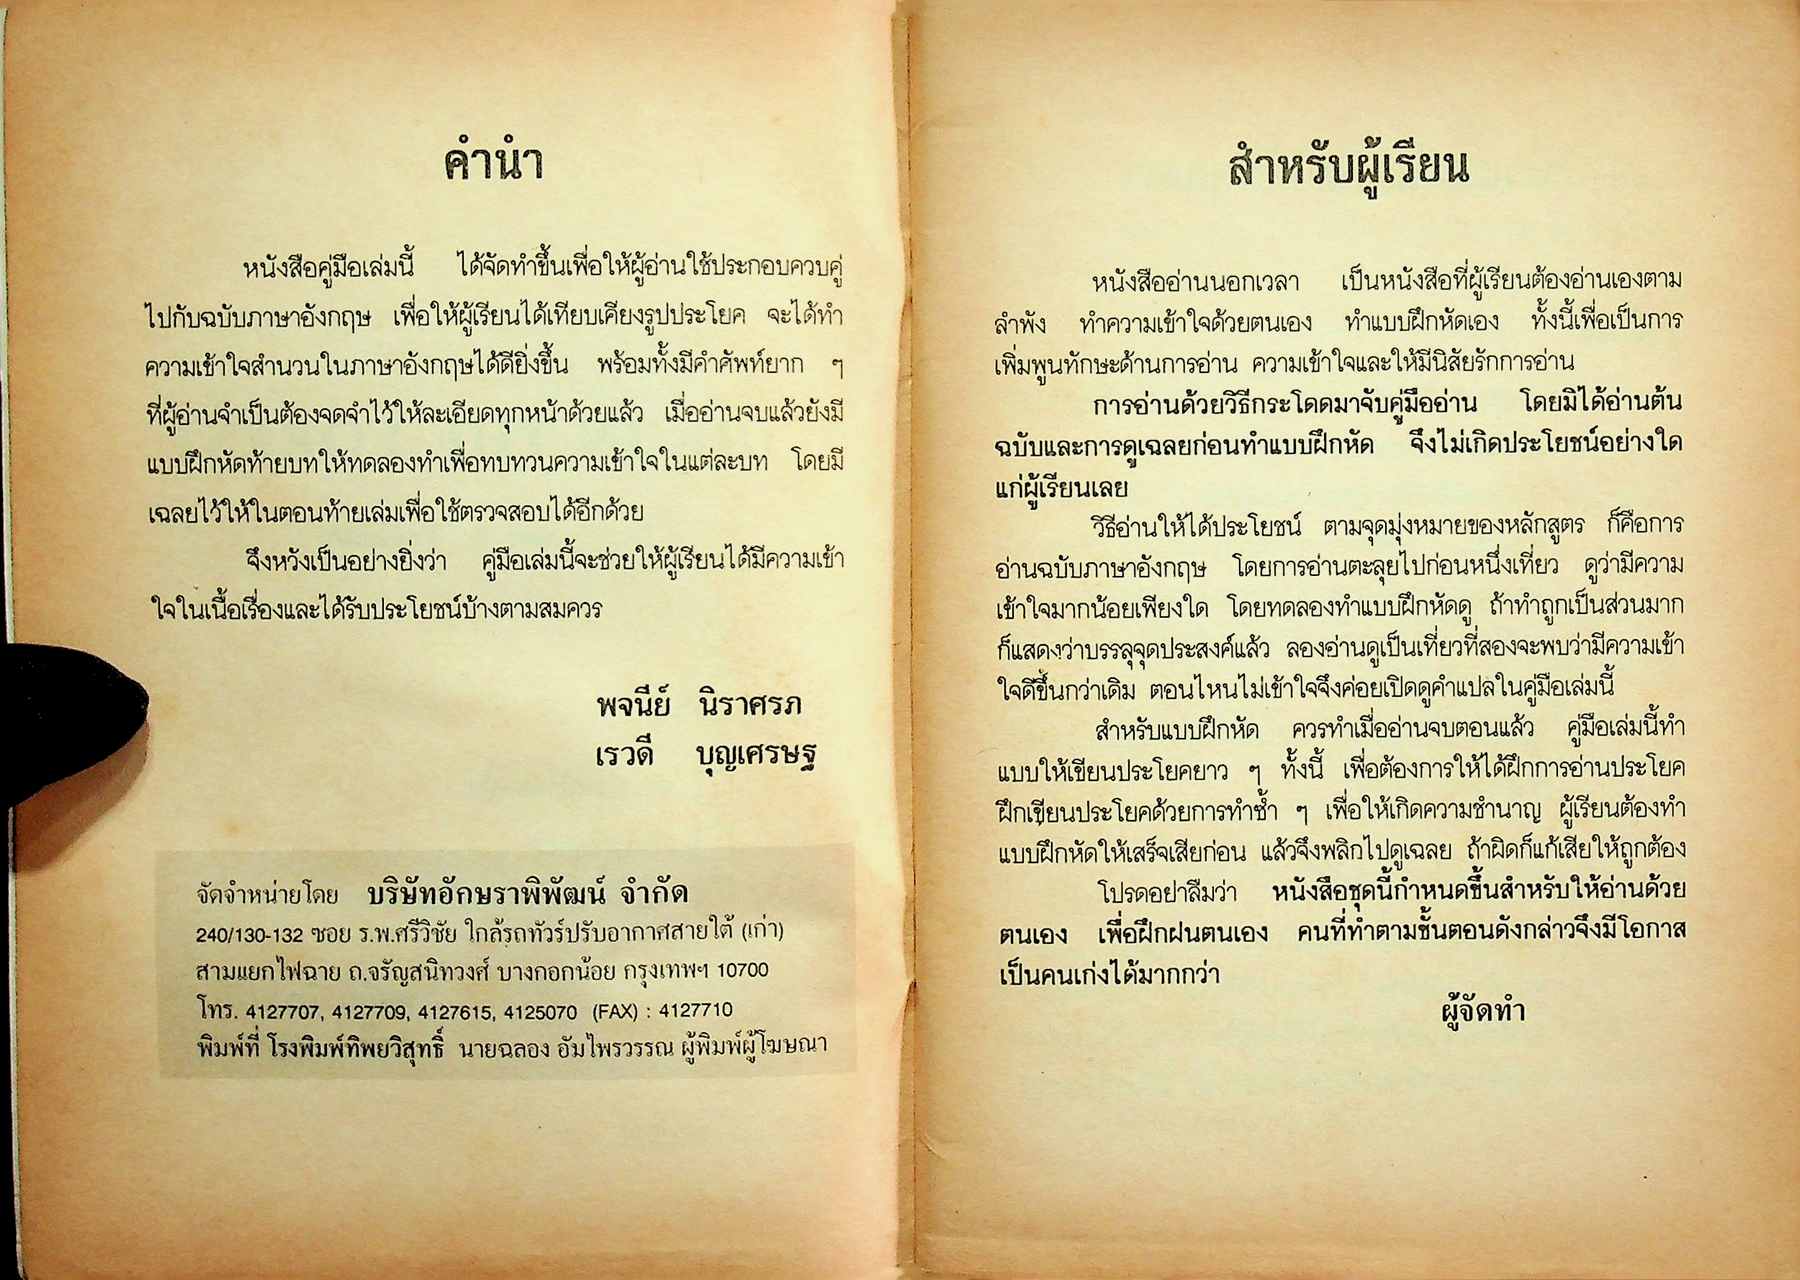 คำนำ
หนังสือคู่มือเล่มนี้ ได้จัดทำขึ้นเพื่อให้ผู้อ่านใช้ประกอบควบคู่
ไปกับฉบับภาษาอังกฤษ เพื่อให้ผู้เรียนได้เทียบเคียงรูปประโยค จะได้ทำ
ความเข้าใจสำนวนในภาษาอังกฤษได้ดียิ่งขึ้น พร้อมทั้งมีคำศัพท์ยาก ๆ
ที่ผู้อ่านจำเป็นต้องจดจำไว้ให้ละเอียดทุกหน้าด้วยแล้ว เมื่ออ่านจบแล้วยังมี
แบบฝึกหัดท้ายบทให้ทดลองทำเพื่อทบทวนความเข้าใจในแต่ละบท โดยมี
เฉลยไว้ให้ในตอนท้ายเล่มเพื่อใช้ตรวจสอบได้อีกด้วย
จึงหวังเป็นอย่างยิ่งว่า คู่มือเล่มนี้จะช่วยให้ผู้เรียนได้มีความเข้า
ใจในเนื้อเรื่องและได้รับประโยชน์บ้างตามสมควร
พจนีย์ นิราศรภ
เรวดี บุญเศรษฐ
จัดจำหน่ายโดย บริษัทอักษราพิพัฒน์ จำกัด
240/130-132 ซอย ร.พ.ศรีวิชัย ใกล้รถทัวร์ปรับอากาศสายใต้ (เก่า)
สามแยกไฟฉาย ถ.จรัญสนิทวงศ์ บางกอกน้อย กรุงเทพฯ 10700
โทร. 4127707, 4127709, 4127615, 4125070 (FAX) : 4127710
พิมพ์ที่ โรงพิมพ์ทิพยวิสุทธิ์ นายฉลอง อัมไพรวรรณ ผู้พิมพ์ผู้โฆษณา
สำหรับผู้เรียน
หนังสืออ่านนอกเวลา เป็นหนังสือที่ผู้เรียนต้องอ่านเองตาม
ลำพัง ทำความเข้าใจด้วยตนเอง ทำแบบฝึกหัดเอง ทั้งนี้เพื่อเป็นการ
เพิ่มพูนทักษะด้านการอ่าน ความเข้าใจและให้มีนิสัยรักการอ่าน
การอ่านด้วยวิธีกระโดดมาจับคู่มืออ่าน โดยมิได้อ่านต้น
ฉบับและการดูเฉลยก่อนทำแบบฝึกหัด จึงไม่เกิดประโยชน์อย่างใด
แก่ผู้เรียนเลย
วิธีอ่านให้ได้ประโยชน์ ตามจุดมุ่งหมายของหลักสูตร ก็คือการ
อ่านฉบับภาษาอังกฤษ โดยการอ่านตะลุยไปก่อนหนึ่งเที่ยว ดูว่ามีความ
เข้าใจมากน้อยเพียงใด โดยทดลองทำแบบฝึกหัดดู ถ้าทำถูกเป็นส่วนมาก
ก็แสดงว่าบรรลุจุดประสงค์แล้ว ลองอ่านดูเป็นเที่ยวที่สองจะพบว่ามีความเข้า
ใจดีขึ้นกว่าเดิม ตอนไหนไม่เข้าใจจึงค่อยเปิดดูคำแปลในคู่มือเล่มนี้
สำหรับแบบฝึกหัด ควรทำเมื่ออ่านจบตอนแล้ว คู่มือเล่มนี้ทำ
แบบให้เขียนประโยคยาว ๆ ทั้งนี้ เพื่อต้องการให้ได้ฝึกการอ่านประโยค
ฝึกเขียนประโยคด้วยการทำซ้ำ ๆ เพื่อให้เกิดความชำนาญ ผู้เรียนต้องทำ
แบบฝึกหัดให้เสร็จเสียก่อน แล้วจึงพลิกไปดูเฉลย ถ้าผิดก็แก้เสียให้ถูกต้อง
โปรดอย่าลืมว่า หนังสือชุดนี้กำหนดขึ้นสำหรับให้อ่านด้วย
ตนเอง เพื่อฝึกฝนตนเอง คนที่ทำตามขั้นตอนดังกล่าวจึงมีโอกาส
เป็นคนเก่งได้มากกว่า
ผู้จัดทำ